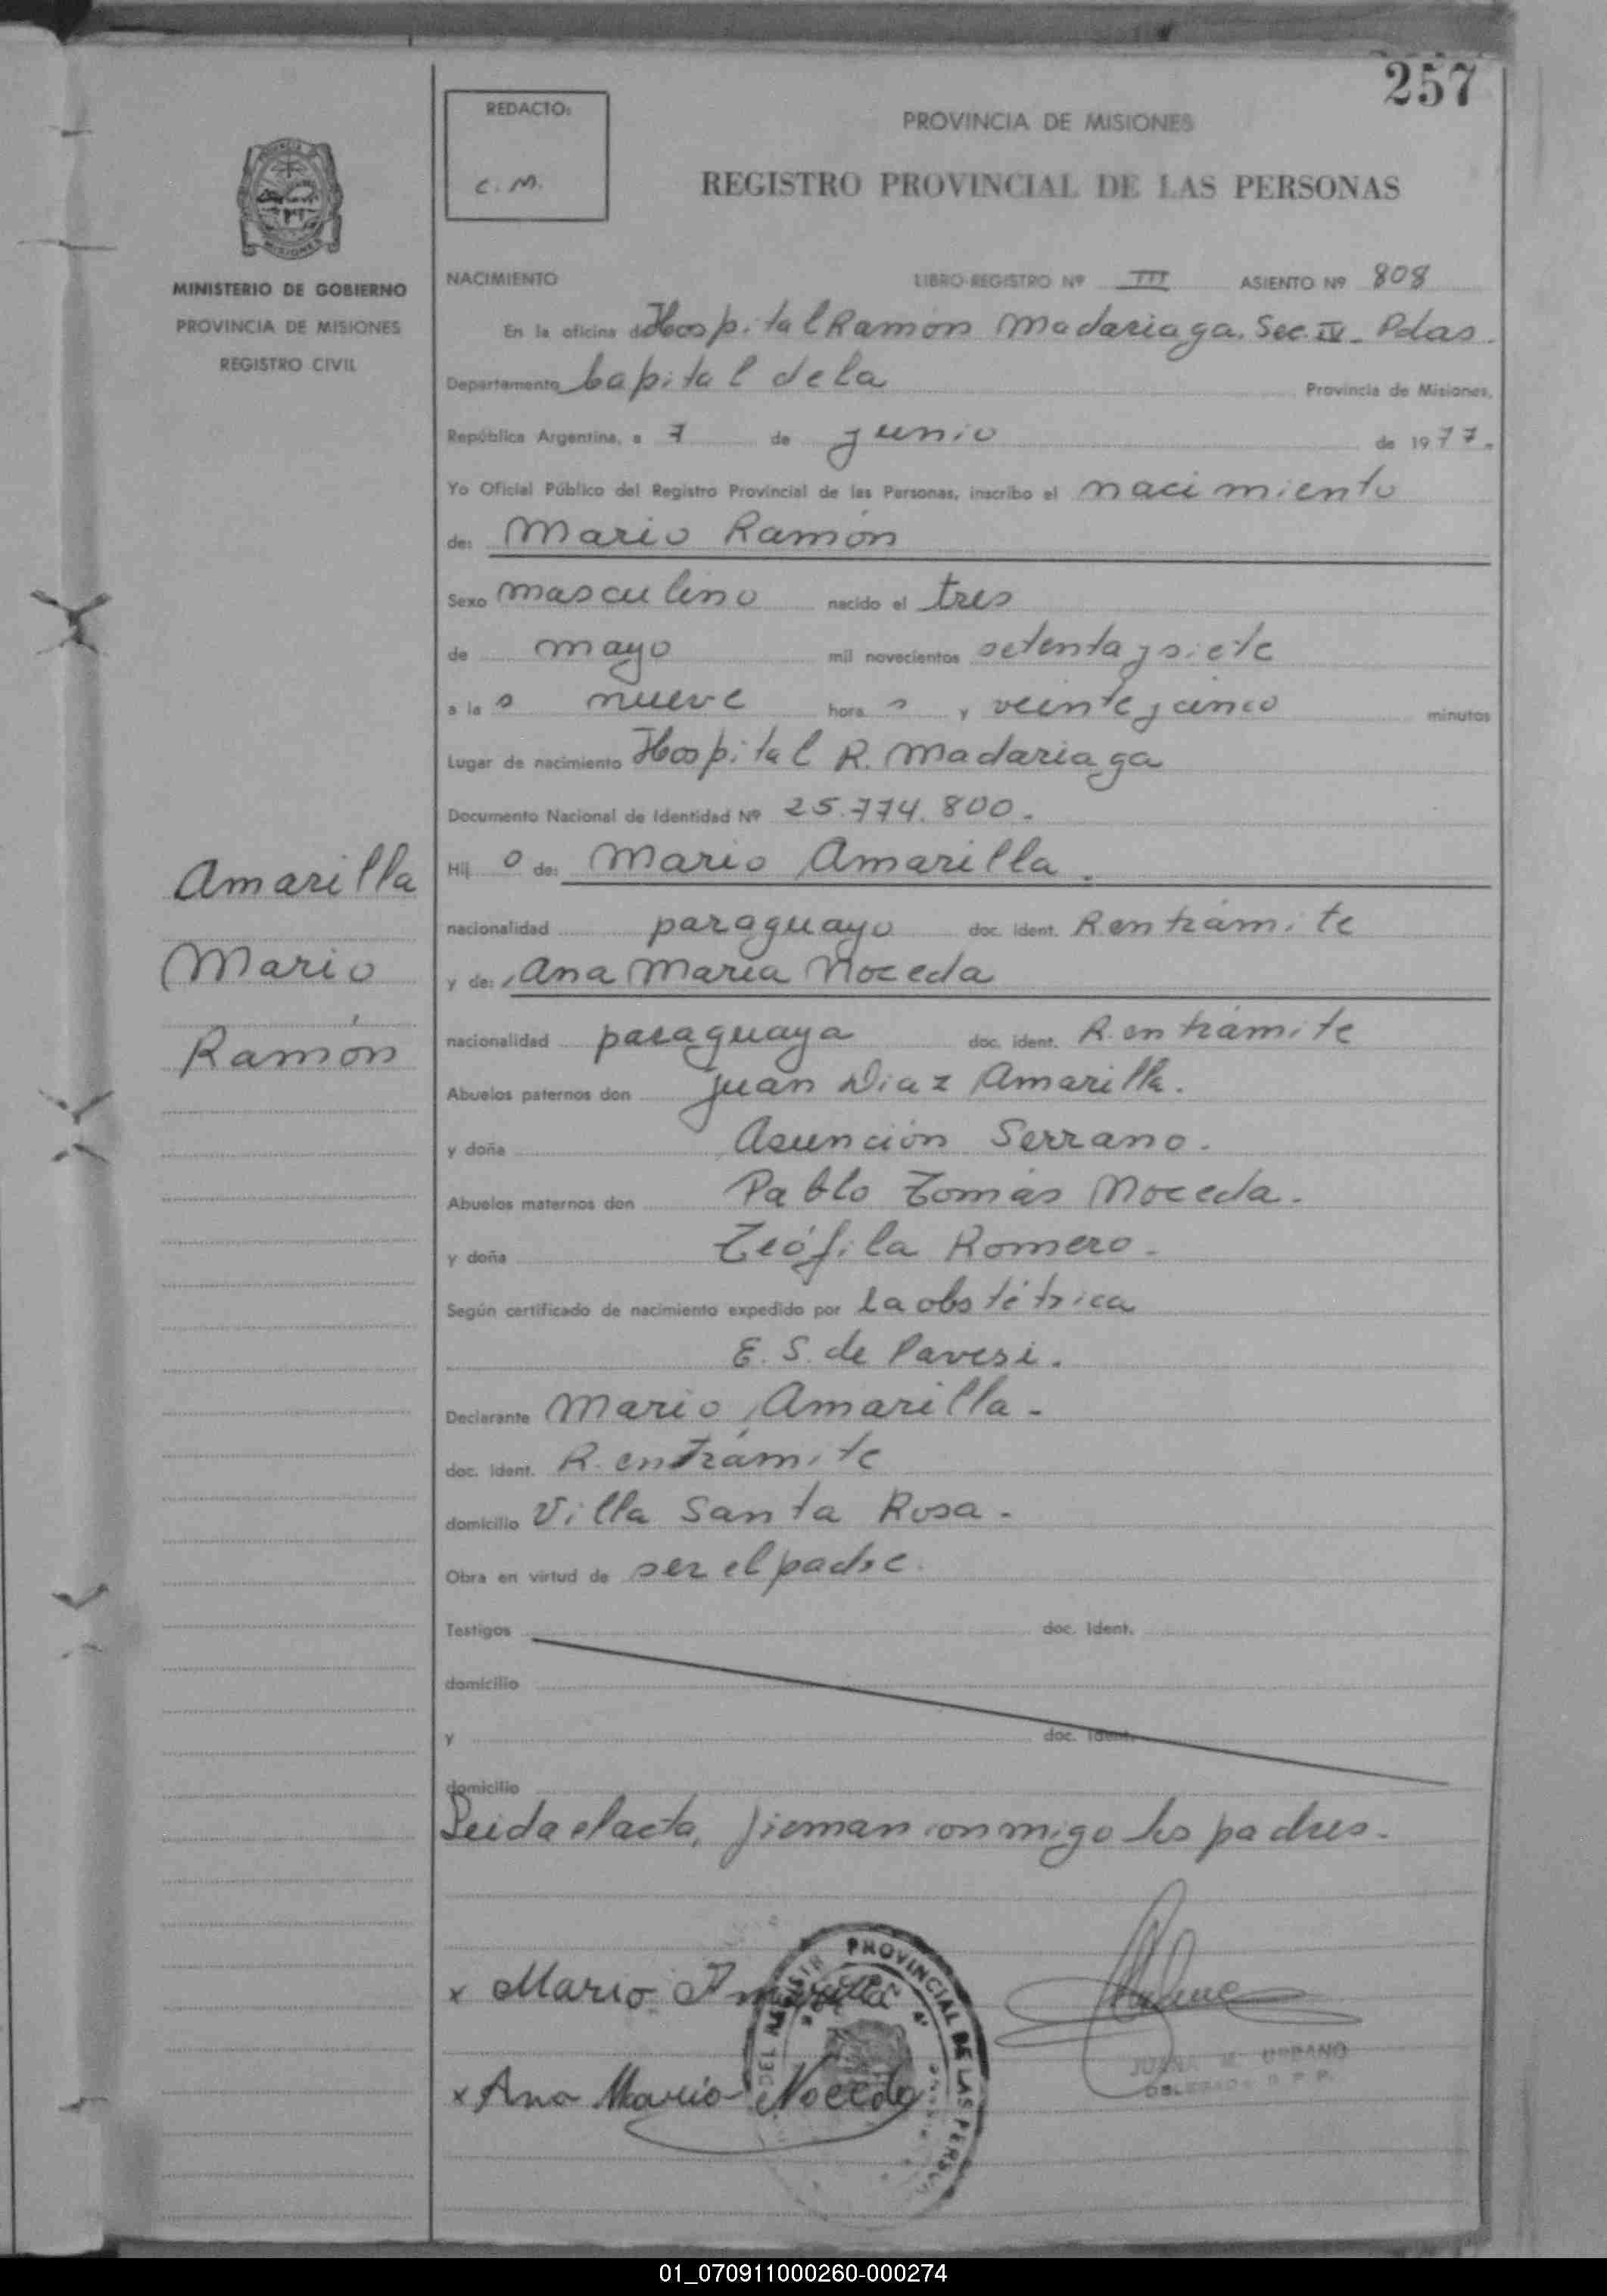 257
REDACTO:
C. M.
PROVINCIA DE MISIONES
REGISTRO PROVINCIAL DE LAS PERSONAS
MISIONES
MINISTERIO DE GOBIERNO
PROVINCIA DE MISIONES
REGISTRO CIVIL
NACIMIENTO LIBRO-REGISTRO Nº III ASIENTO Nº 808
En la oficina de Hospital Ramón Madariaga. Sec. IV. Pdas.
Departamento Capital de la Provincia de Misiones,
República Argentina, a 7 de junio de 1977.
Yo Oficial Público del Registro Provincial de las Personas, inscribo el nacimiento
de: Mario Ramón
Sexo masculino nacido el tres
de mayo mil novecientos setenta y siete
a la s nueve hora s y veinte y cinco minutos
Lugar de nacimiento Hospital R. Madariaga
Documento Nacional de Identidad Nº 25.774.800.
Hij o de: Mario Amarilla.
nacionalidad paraguayo doc. ident. R. en trámite
y de: Ana Maria Noceda
nacionalidad paraguaya doc. ident. R. en trámite
Abuelos paternos don Juan Diaz Amarilla.
y doña Asunción Serrano.
Abuelos maternos don Pablo Tomás Noceda.
y doña Teófila Romero.
Según certificado de nacimiento expedido por la obstétrica
E. S. de Pavesi.
Declarante Mario Amarilla.
doc. ident. R. en trámite
domicilio Villa Santa Rosa.
Obra en virtud de ser el padre.
Testigos doc. ident.
domicilio
y doc. ident.
domicilio
Leida el acta, firman conmigo los padres.
Amarilla
Mario
Ramón
x Mario Amarilla
x Ana Maria Noceda
PROVINCIAL DE LAS PERSON
JUANA M. URBANO
DELEGADA R. P. P.
01_070911000260-000274